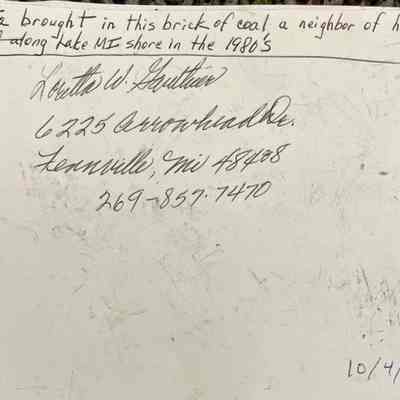 brought in this brick of coal a neighbor of h
along Lake MI shore in the 1980's
Loretta W. Gauthier
6225 Arrowhead Dr.
Fennville, Mi 48408
269-857-7470
10/4/